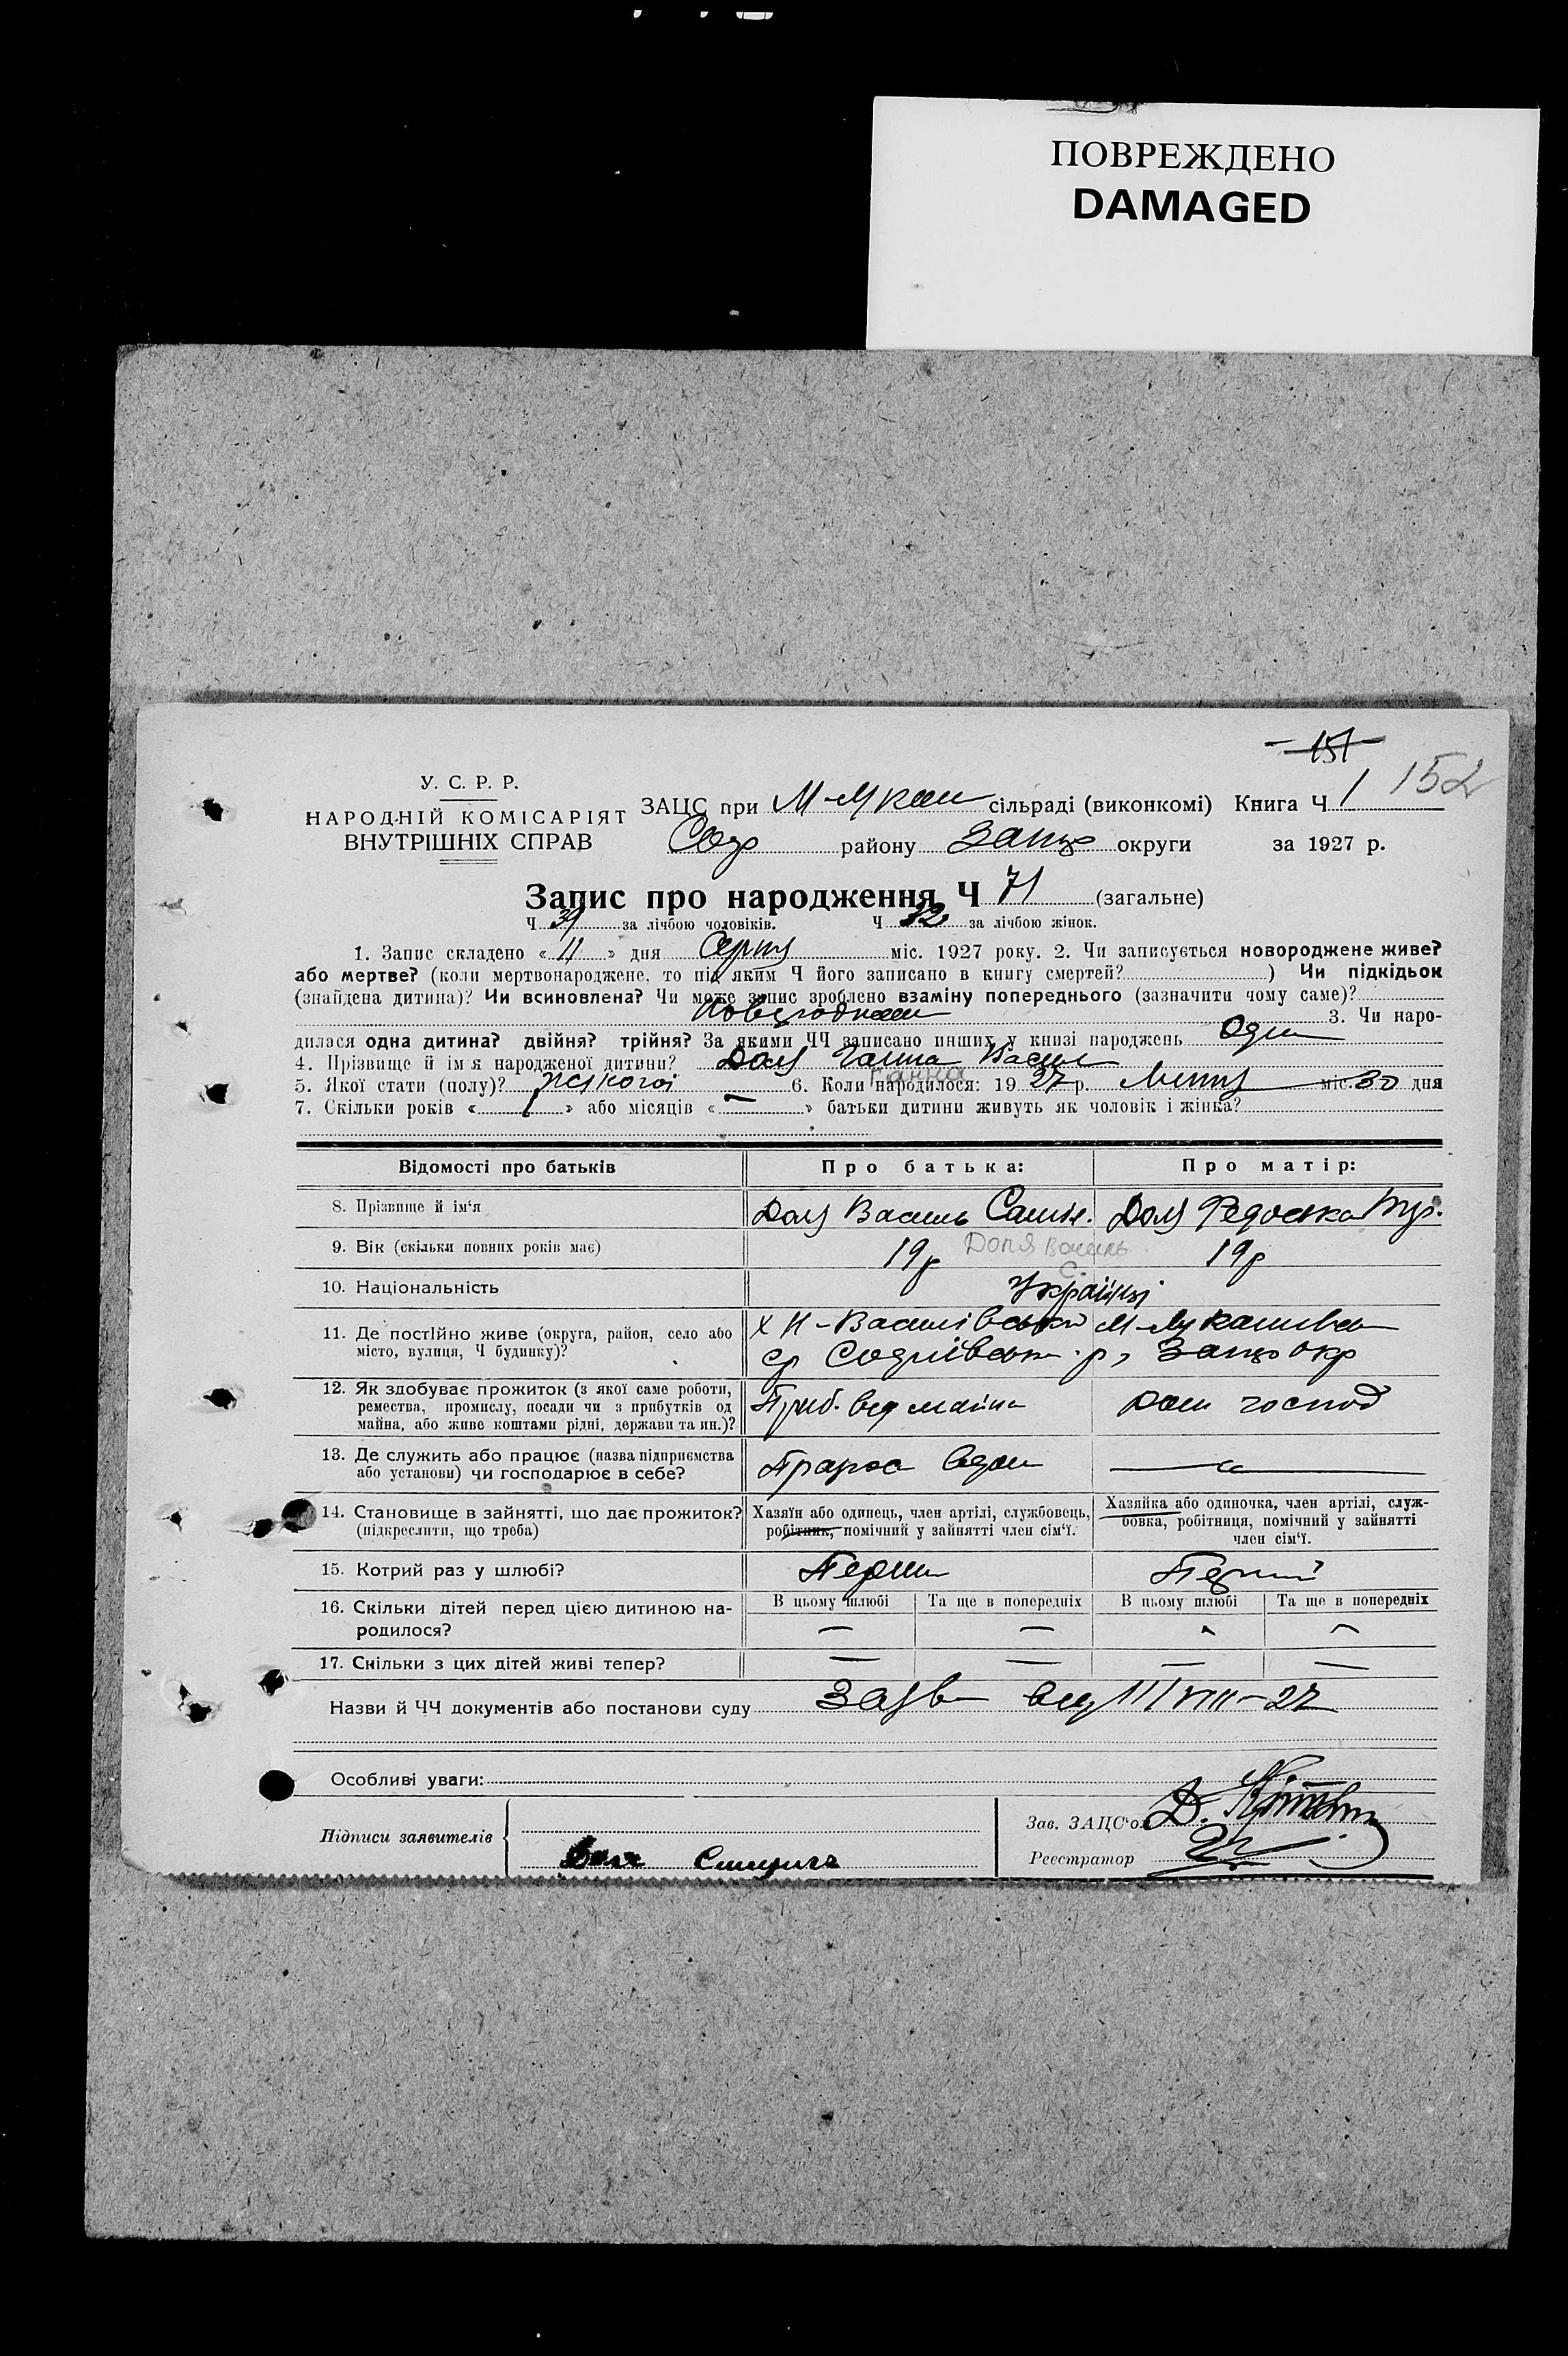 ПОВРЕЖДЕНО
DAMAGED
151
152
У. С. Р. Р.
НАРОДНІЙ КОМІСАРІЯТ
ВНУТРІШНІХ СПРАВ
ЗАЦС при М-Мукаш сільраді (виконкомі) Книга Ч 1
району Запо округи за 1927 р.
Запис про народження Ч 71 (загальне)
Ч 39 за лічбою чоловіків. Ч 32 за лічбою жінок.
1. Запис складено « 11 » дня Серпня міс. 1927 року. 2. Чи записується новороджене живе?
або мертве? (коли мертвонароджене, то під яким Ч його записано в книгу смертей? ) Чи підкідьок
(знайдена дитина)? Чи всиновлена? Чи може запис зроблено взаміну попереднього (зазначити чому саме)?
3. Чи наро-
дилася одна дитина? двійня? трійня? За якими ЧЧ записано инших у книзі народжень Один
4. Прізвище й ім'я народженої дитини? Доля Ганна Васил
Ганна
5. Якої стати (полу)? жіночої 6. Коли народилося: 19 27 р. Липня міс. 30 дня
7. Скільки років « » або місяців « — » батьки дитини живуть як чоловік і жінка?
Відомості про батьків Про батька: Про матір:
8. Прізвище й ім'я Доля Василь Доля Федоська
9. Вік (скільки повних років має) 19 р Доля Василь С. 19 р
10. Національність Українці
11. Де постійно живе (округа, район, село або Х Н-Василівський
місто, вулиця, Ч будинку)?
12. Як здобуває прожиток (з якої саме роботи, Приб. від майна Дом господ
ремества, промислу, посади чи з прибутків од
майна, або живе коштами рідні, держави та ин.)?
13. Де служить або працює (назва підприємства
або установи) чи господарює в себе?
14. Становище в зайнятті, що дає прожиток? Хазяїн або одинець, член артілі, службовець, Хазяйка або одиночка, член артілі, служ-
(підкреслити, що треба) робітник, помічний у зайнятті член сім'ї. бовка, робітниця, помічний у зайнятті
член сім'ї.
15. Котрий раз у шлюбі? Перший Перший
16. Скільки дітей перед цією дитиною на- В цьому шлюбі Та ще в попередніх В цьому шлюбі Та ще в попередніх
родилося? — — — —
17. Скільки з цих дітей живі тепер? — — — —
Назви й ЧЧ документів або постанови суду Заява від 11/VIII-27
Особливі уваги:
Підписи заявителів
Зав. ЗАЦС'ом
Реєстратор